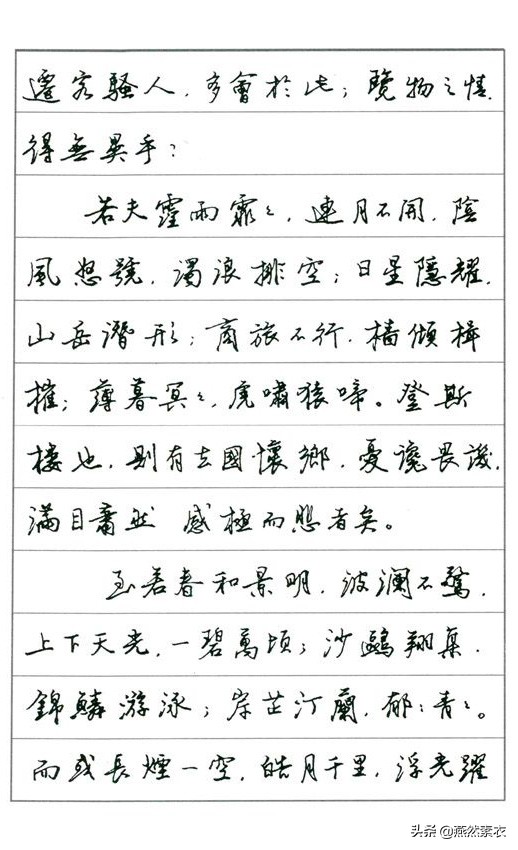 遷客騷人，多會於此；覽物之情，
得無異乎？
若夫霪雨霏々，連月不開，陰
風怒號，濁浪排空；日星隱耀，
山岳潛形；商旅不行，檣傾楫
摧；薄暮冥々，虎嘯猿啼。登斯
樓也，則有去國懷鄉，憂讒畏譏，
滿目蕭然 感極而悲者矣。
至若春和景明，波瀾不驚，
上下天光，一碧萬頃；沙鷗翔集，
錦鱗游泳；岸芷汀蘭，郁々青々。
而或長煙一空，皓月千里，浮光躍
头条 @燕然素衣